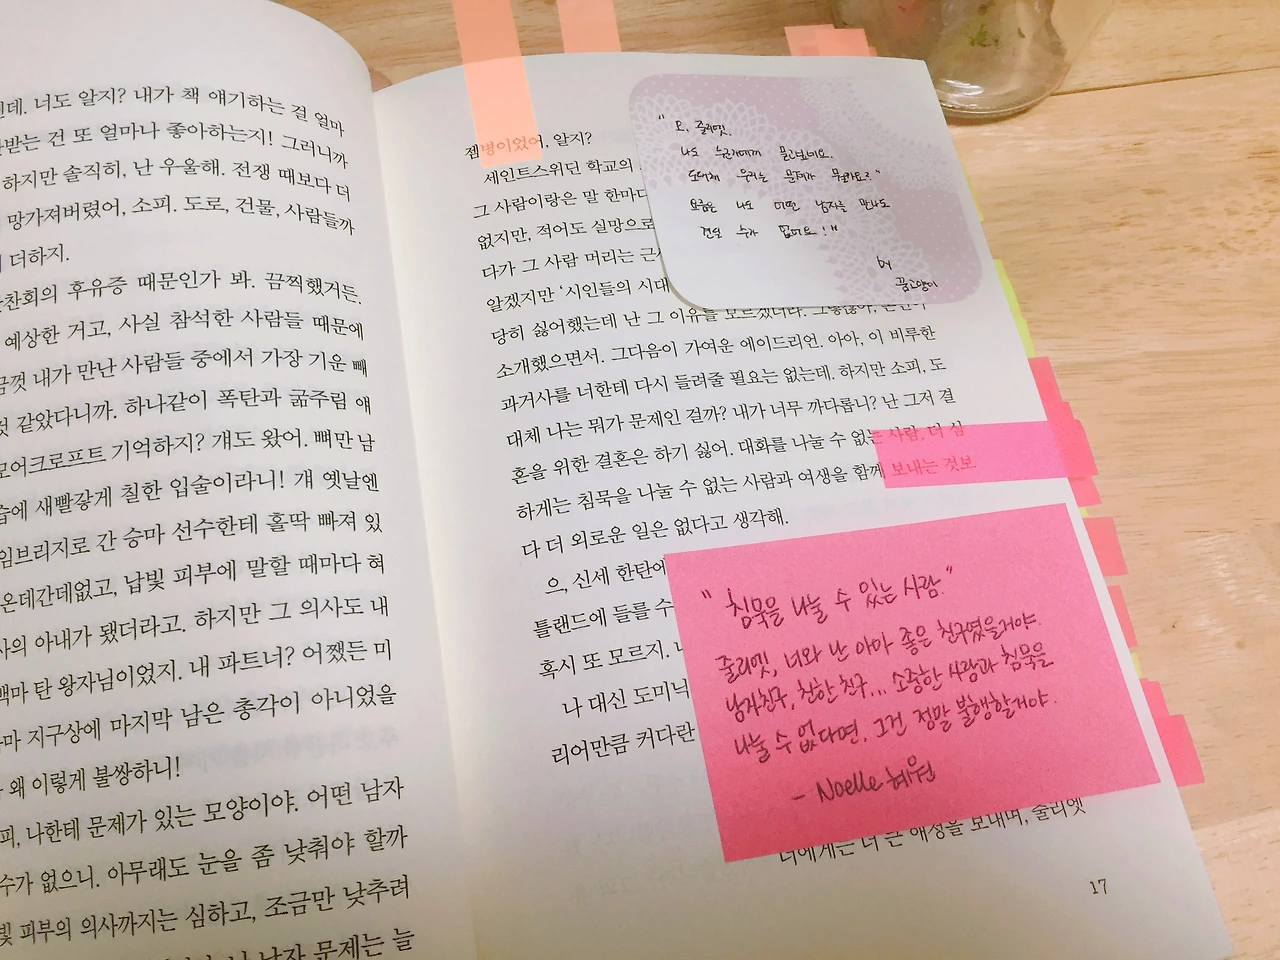 데. 너도 알지? 내가 책 얘기하는 걸 얼마
받는 건 또 얼마나 좋아하는지! 그러니까
하지만 솔직히, 난 우울해. 전쟁 때보다 더
망가져버렸어, 소피. 도로, 건물, 사람들까
더하지.
찬회의 후유증 때문인가 봐. 끔찍했거든.
예상한 거고, 사실 참석한 사람들 때문에
금껏 내가 만난 사람들 중에서 가장 기운 빼
것 같았다니까. 하나같이 폭탄과 굶주림 얘
모어크로프트 기억하지? 걔도 왔어. 뼈만 남
습에 새빨갛게 칠한 입술이라니! 걔 옛날엔
임브리지로 간 승마 선수한테 홀딱 빠져 있
온데간데없고, 납빛 피부에 말할 때마다 혀
사의 아내가 됐더라고. 하지만 그 의사도 내
백마 탄 왕자님이었지. 내 파트너? 어쨌든 미
마 지구상에 마지막 남은 총각이 아니었을
왜 이렇게 불쌍하니!
피, 나한테 문제가 있는 모양이야. 어떤 남자
수가 없으니. 아무래도 눈을 좀 낮춰야 할까
빛 피부의 의사까지는 심하고, 조금만 낮추려
남자 문제는 늘
젬병이었어, 알지?
세인트스위딘 학교의
그 사람이랑은 말 한마디
없지만, 적어도 실망으로
다가 그 사람 머리는 근
알겠지만 '시인들의 시대
당히 싫어했는데 난 그 이유를 모르겠더라. 그렇잖아,
소개했으면서. 그다음이 가여운 에이드리언. 아아, 이 비루한
과거사를 너한테 다시 들려줄 필요는 없는데. 하지만 소피, 도
대체 나는 뭐가 문제인 걸까? 내가 너무 까다롭니? 난 그저 결
혼을 위한 결혼은 하기 싫어. 대화를 나눌 수 없는 사람, 더 심
하게는 침묵을 나눌 수 없는 사람과 여생을 함께 보내는 것보
다 더 외로운 일은 없다고 생각해.
으, 신세 한탄에
틀랜드에 들를 수
혹시 또 모르지.
나 대신 도미닉
리어만큼 커다란
너에게는 더 큰 애정을 보내며, 줄리엣
17
" 오, 줄리엣.
나도 누군가에게 묻고싶네요.
도대체 우리는 문제가 뭘까요?"
요즘은 나도 어떤 남자를 만나도
견딜 수가 없어요!"
by
꿈고양이
"침묵을 나눌 수 있는 사람."
줄리엣, 너와 난 아마 좋은 친구였을거야.
남자친구, 친한 친구... 소중한 사람과 침묵을
나눌 수 없다면, 그건 정말 불행할거야.
- Noelle 혜원